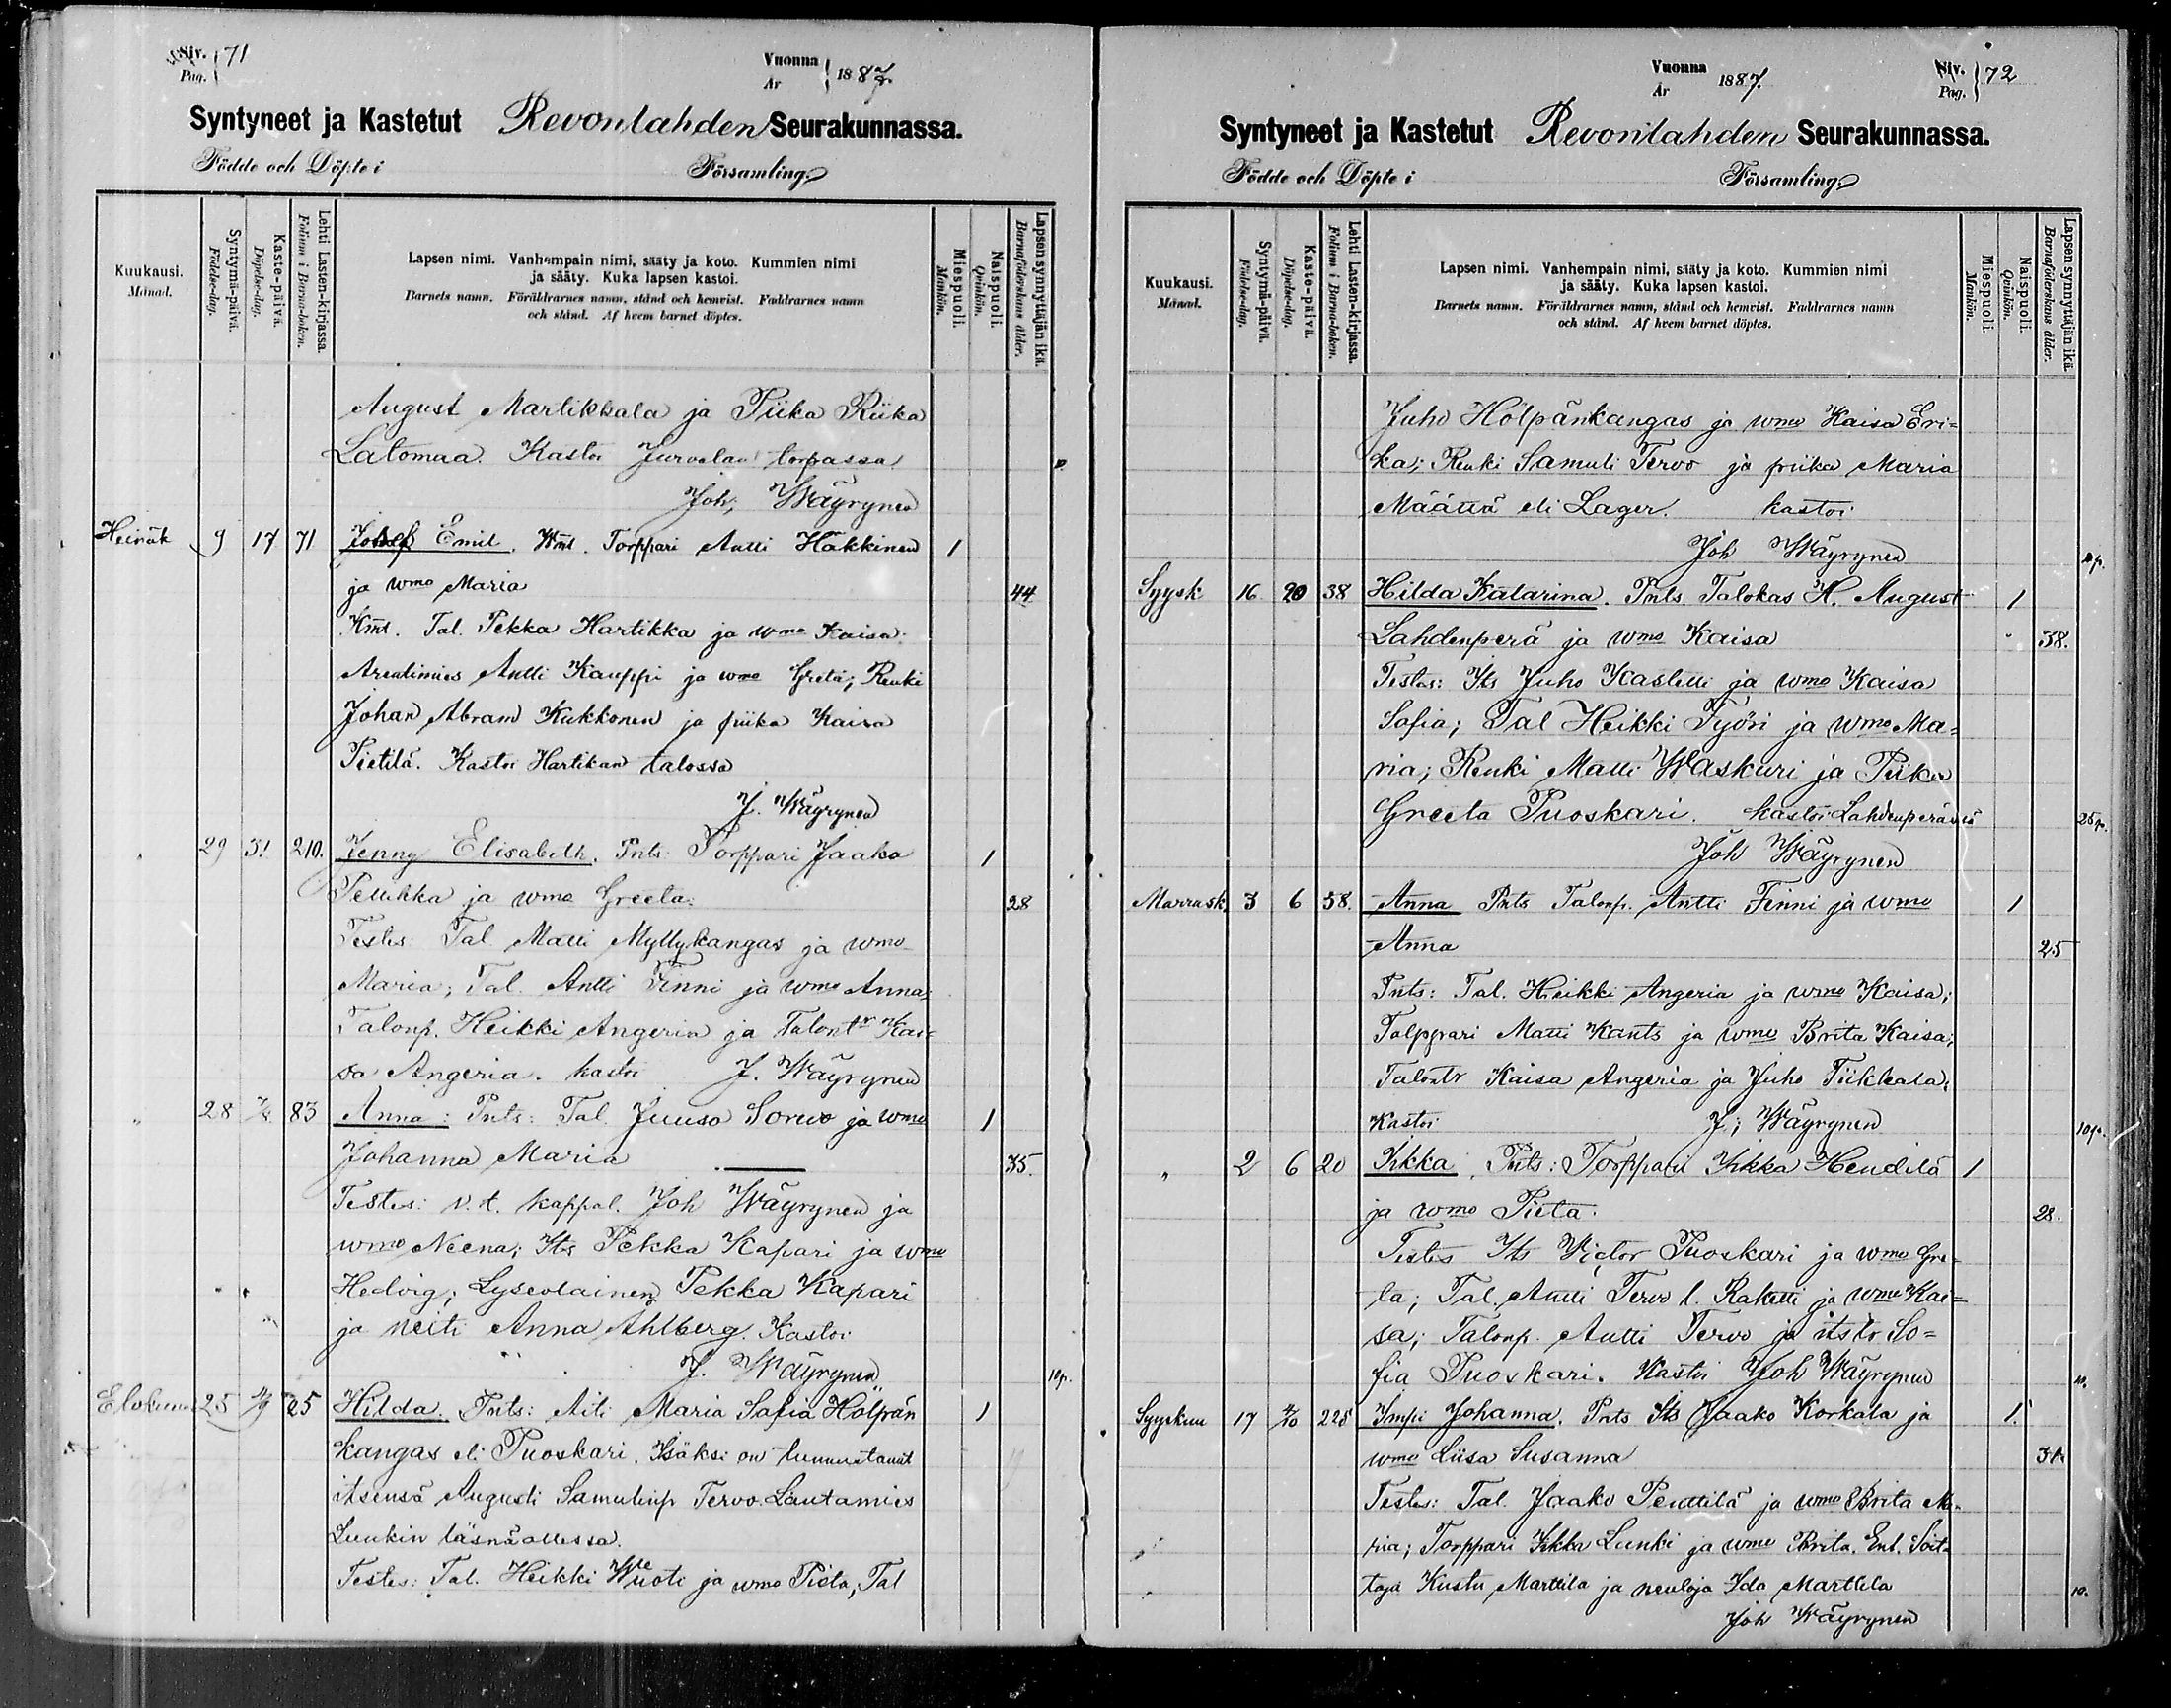 Siv. 71
Pag.
Vuonna 1887.
År
Syntyneet ja Kastetut Revonlahden Seurakunnassa.
Födde och Döpte i Församling
Kuukausi.
Månad.
Syntymä-päivä.
Födelse-dag.
Kaste-päivä.
Döpelse-dag.
Lehti Lasten-kirjassa.
Folium i Barna-boken.
Lapsen nimi. Vanhempain nimi, sääty ja koto. Kummien nimi
ja sääty. Kuka lapsen kastoi.
Barnets namn. Föräldrarnes namn, stånd och hemvist. Faddrarnes namn
och stånd. Af hvem barnet döptes.
Miespuoli.
Mankön.
Naispuoli.
Qvinkön.
Lapsen synnyttäjän ikä.
Barnaföderskans ålder.
August Martikkala ja Piika Riika
Latomaa. Kastoi torpassa
Joh; Wäyrynen
Heinäk 9 17 71 Emil. Wmt. Torppari Antti Hakkinen 1
ja wmo Maria 44
Kmt. Tal. Pekka Hartikka ja wmo Kaisa;
Antti Kauppi ja wmo Greta; Renki
Johan Abram Kukkonen ja piika Kaisa
Pietilä. Kastoi Hartikan talossa
J. Wäyrynen
" 29 31 210. Jenny Elisabeth. Pnts: Torppari Jaako 1
ja wmo Greeta. 28
Testes: Tal. Matti Myllykangas ja wmo
Maria; Tal. Antti Finni ja wmo Anna;
Talonp. Heikki Angeria ja Talontr Kai-
sa Angeria. kastoi J. Wäyrynen
" 28 7/8 83 Anna: Pnts: Tal. Juuso Sorvo ja wmo 1
Johanna Maria 35.
Testes: v.t. kappal. Joh Wäyrynen ja
wmo Neena; Its Pekka Kapari ja wmo
Hedvig; Lyseolainen Pekka Kapari
ja neiti Anna Ahlberg. Kastoi
J. Wäyrynen 10p.
Elokuu 25 25 Hilda. Pnts: Äiti Maria Safia Hölpän 1
kangas eli Puoskari. Isäksi on tunnustanut
itsensä Augusti Samulinp Tervo. Lautamies
Lunkin läsnäollessa.
Testes: Tal. Heikki Wuoti ja wmo Pieta, Tal
Vuonna 1887.
År
Siv. 72
Pag.
Syntyneet ja Kastetut Revonlahden Seurakunnassa.
Födde och Döpte i Församling
Kuukausi.
Månad.
Syntymä-päivä.
Födelse-dag.
Kaste-päivä.
Döpelse-dag.
Lehti Lasten-kirjassa.
Folium i Barna-boken.
Lapsen nimi. Vanhempain nimi, sääty ja koto. Kummien nimi
ja sääty. Kuka lapsen kastoi.
Barnets namn. Föräldrarnes namn, stånd och hemvist. Faddrarnes namn
och stånd. Af hvem barnet döptes.
Miespuoli.
Mankön.
Naispuoli.
Qvinkön.
Lapsen synnyttäjän ikä.
Barnaföderskans ålder.
Juho Hölpänkangas ja wmo Kaisa Eri=
ka; Renki Samuli Tervo ja piika Maria
Määttä eli Lager. kastoi
Joh Wäyrynen
Syysk 16 20 38 Hilda Katarina. Pnts. Talokas K. August 1
Lahdenperä ja wmo Kaisa 38.
Testes: Its Juho Kastelli ja wmo Kaisa
Sofia; Tal Heikki Työri ja wmo Ma=
ria; Renki Matti Waskuri ja Piika
Greeta Puoskari. kastoi Lahdenperässä 25p.
Joh Wäyrynen
Marrask. 3 6 58. Anna Pnts Talonp. Antti Finni ja wmo 1
Anna 25
Pnts: Tal. Heikki Angeria ja wmo Kaisa;
Talppari Matti Kants ja wmo Brita Kaisa;
Talontr Kaisa Angeria ja Juho Tiikkala,
Kastoi J; Wäyrynen 10p.
" 2 6 20 Iikka. Pnts: Torppari Iikka Hendilä 1
ja wmo Pieta. 28.
Testes Its Victor Puoskari ja wmo Gre-
ta; Tal. Antti Tervo l. Raketti ja wmo Kai=
sa; Talonp. Antti Tervo ja itstr So=
fia Puoskari. Kastoi Joh Wäyrynen 10.
Syyskuu 17 2/10 225 Impi Johanna. Pnts Its Jaako Korkala ja 1.
wmo Liisa Susanna 31.
Testes: Tal. Jaako Penttilä ja wmo Brita Ma-
ria; Torppari Iikka Lunki ja wmo Brita. Ent. Soit-
taja Kustu Marttila ja neuloja Ida Marttila 10.
Joh Wäyrynen